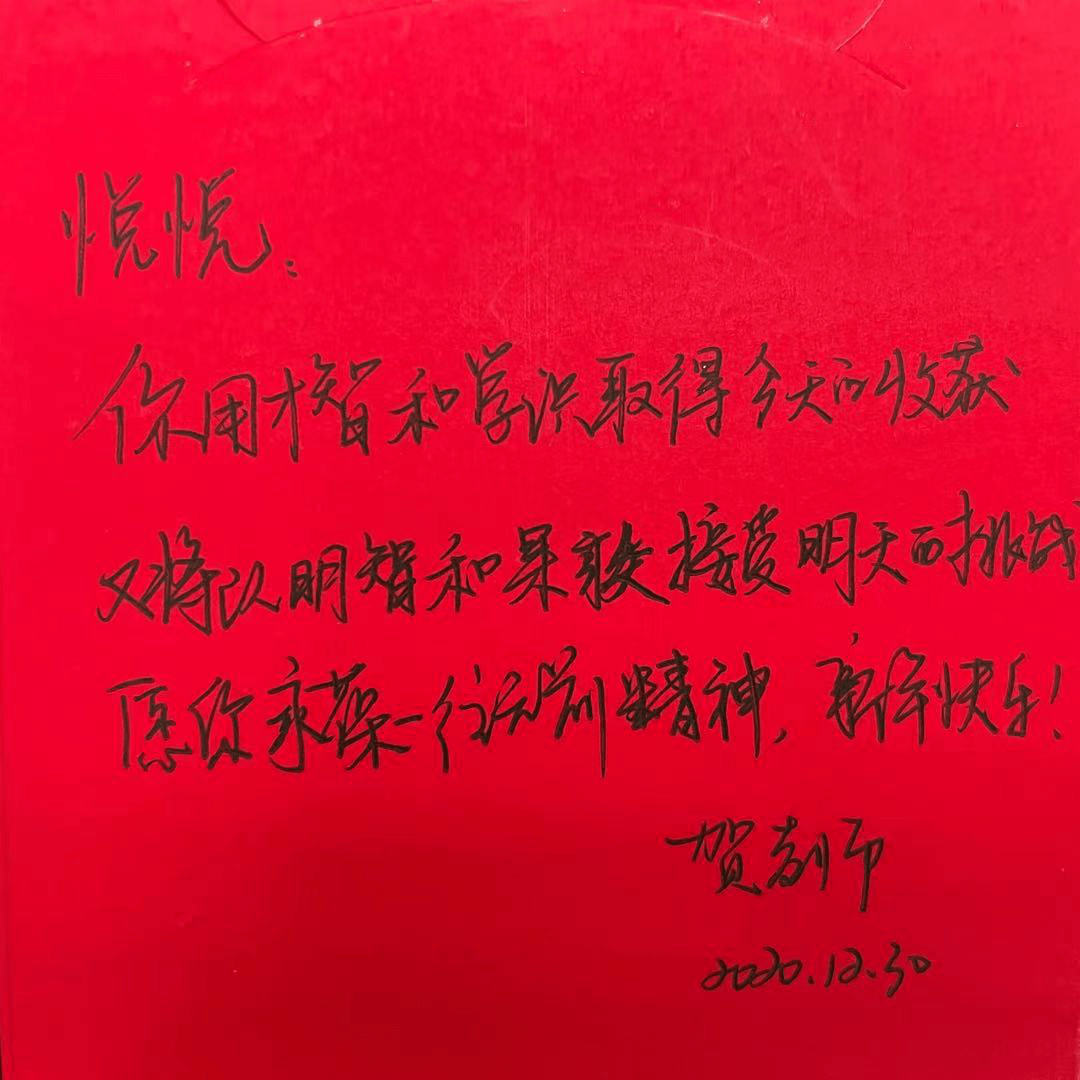 悦悦:
你用才智和学识取得今天的收获
又将以明智和果敢接受明天的挑战
愿你永葆一往无前精神,新年快乐!
贺老师
2020.12.30